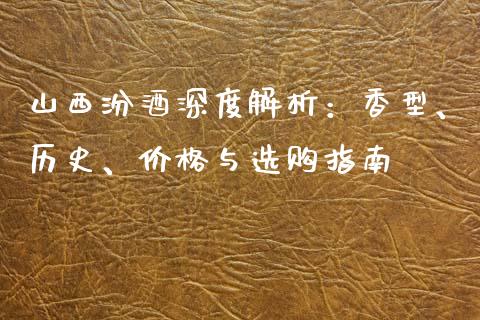 山西汾酒深度解析：香型、
历史、价格与选购指南